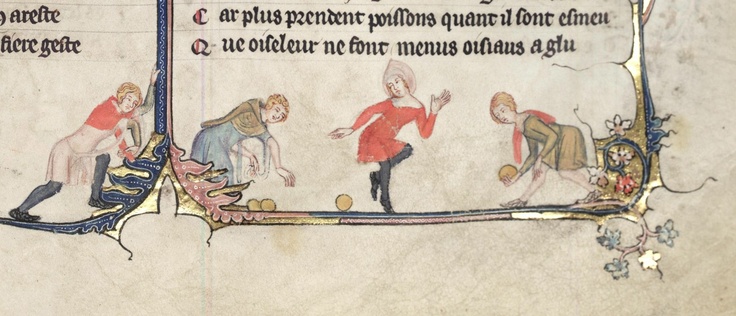 areste
fiere geste
Car plus prendent poissons quant il sont esmeu
Que oiseleur ne font menus oisiaus a glu